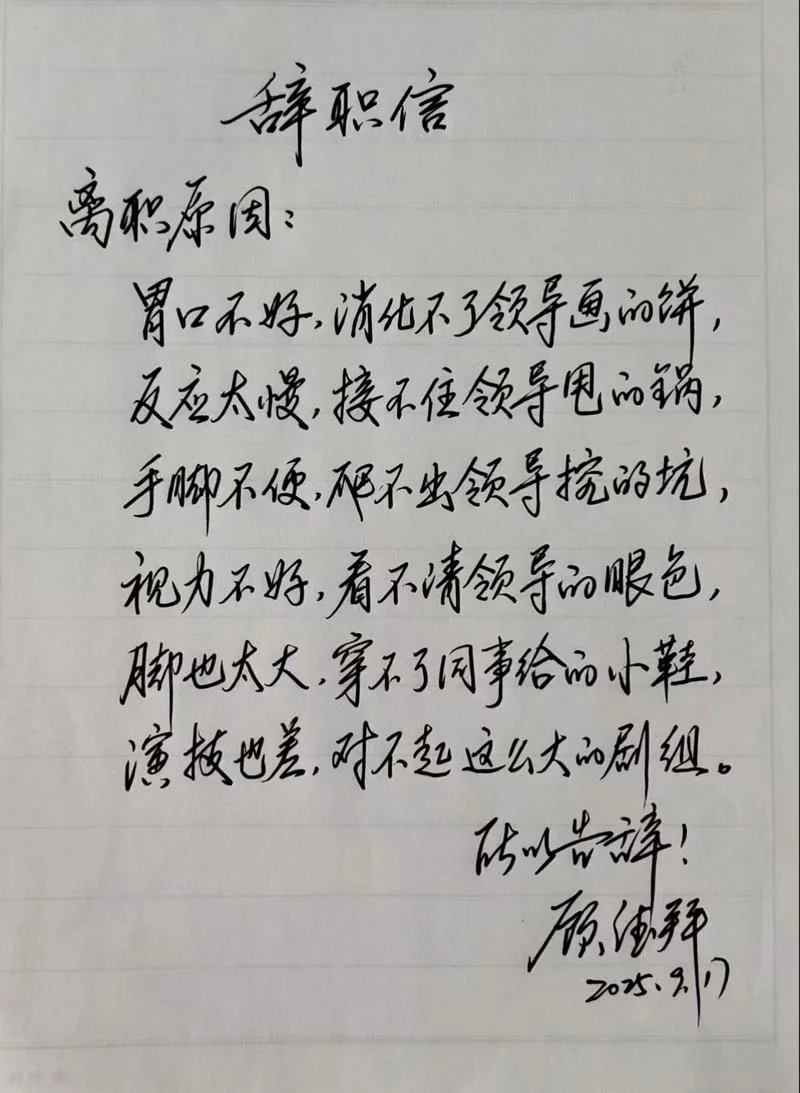 辞职信
离职原因：
胃口不好，消化不了领导画的饼，
反应太慢，接不住领导甩的锅，
手脚不便，爬不出领导挖的坑，
视力不好，看不清领导的眼色，
脚也太大，穿不了同事给的小鞋，
演技也差，对不起这么大的剧组。
所以告辞！
顾佳拜
2025.9.17